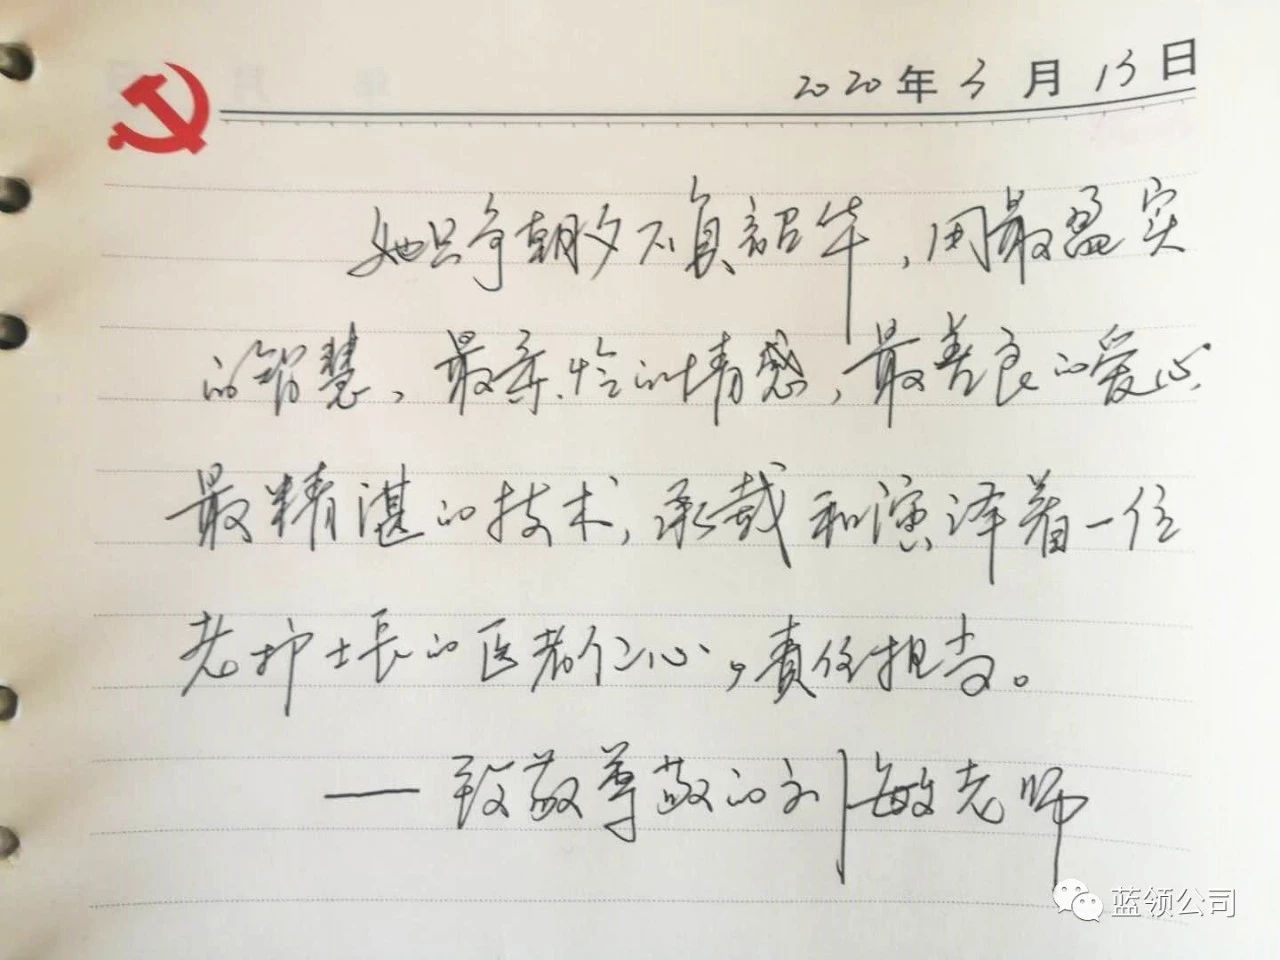 2020年3月13日
她只争朝夕不负韶华,用最盈实
的智慧、最亲怜的情感,最善良的爱心
最精湛的技术,承载和演泽着一位
老护士长的医者仁心,责任担当。
——致敬尊敬的刘敏老师
蓝领公司